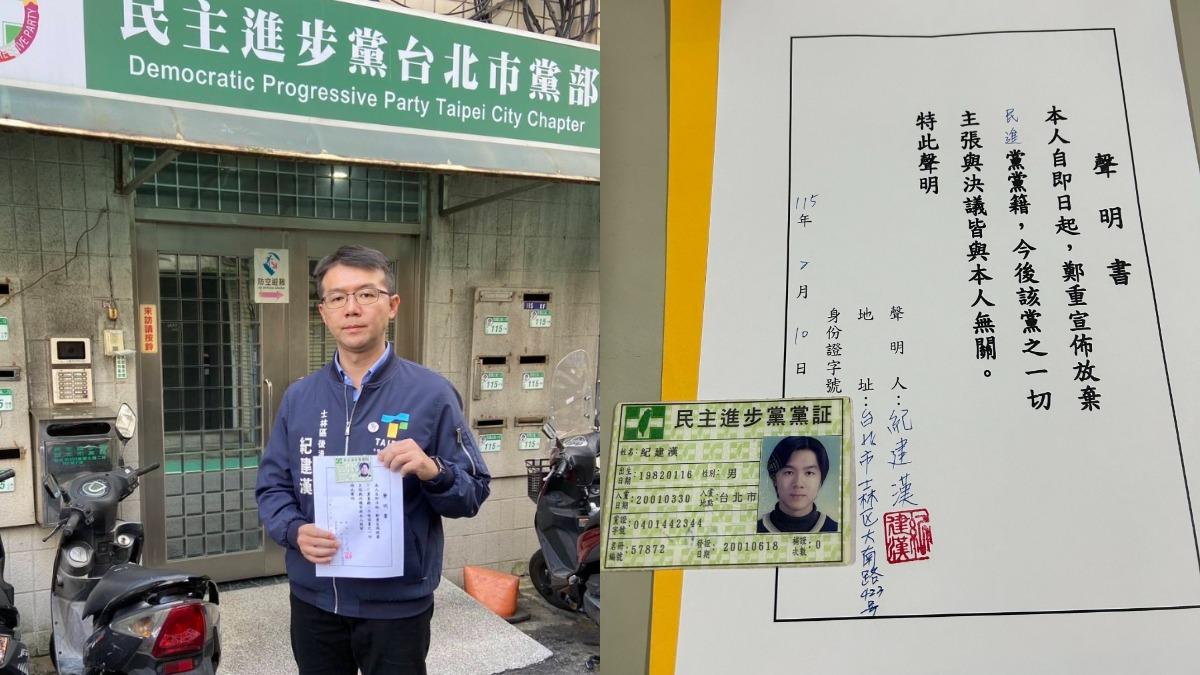 民主進步黨台北市黨部
Democratic Progressive Party Taipei City Chapter
IVE PARTY
防空避難
來訪請按鈴
115
115
115
115
115
115
士林區 後港
紀建漢
TAI
聲明書
本人自即日起，鄭重宣佈放棄
民進黨黨籍，今後該黨之一切
主張與決議皆與本人無關。
特此聲明
聲明人：紀建漢
紀建漢
地址：台北市士林区大南路423号
身份證字號
115年2月10日
民主進步黨黨証
姓名：紀建漢
出生日期：19820116 性別：男
入黨日期：20010330 入黨地點：台北市
黨證字號：0401442344
名冊編號：57872 發證日期：20010618 補證次數：0